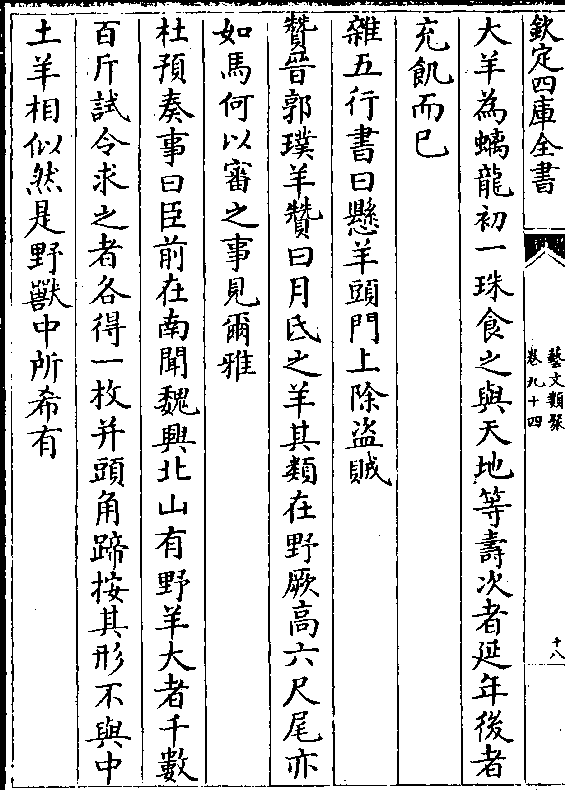 欽定四庫全書
藝文類聚
卷九十四
十八
大羊為螭龍初一珠食之與天地等壽次者延年後者
充飢而已
雜五行書曰懸羊頭門上除盜賊
贊晉郭璞羊贊曰月氐之羊其類在野厥高六尺尾亦
如馬何以審之事見爾雅
杜預奏事曰臣前在南聞魏興北山有野羊大者千數
百斤試令求之者各得一枚并頭角蹄按其形不與中
土羊相似然是野獸中所希有